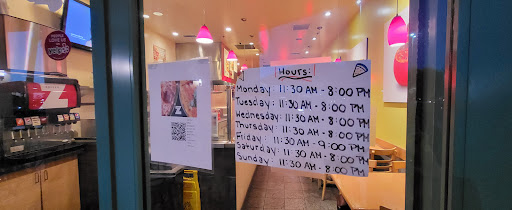 Hours:
Monday: 11:30 AM - 8:00 PM
Tuesday: 11:30 AM - 8:00 PM
Wednesday: 11:30 AM - 8:00 PM
Thursday: 11:30 AM - 8:00 PM
Friday: 11:30 AM - 9:00 PM
Saturday: 11:30 AM - 8:00 PM
Sunday: 11:30 AM - 8:00 PM